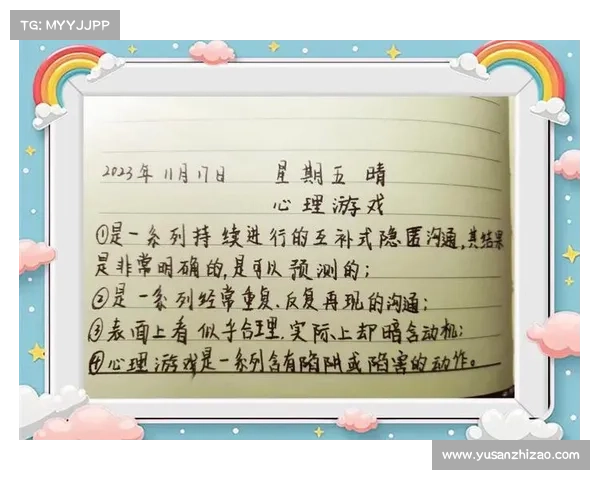 TG: MYYJJPP
2023年11月17日 星期五 晴
心理游戏
①是一系列持续进行的互补式隐匿沟通,其结果
是非常明确的,是可以预测的;
②是一系列经常重复、反复再现的沟通;
③表面上看似乎合理,实际上却暗含动机;
④心理游戏是一系列含有陷阱或陷害的动作。
www.yusanzhizao.com